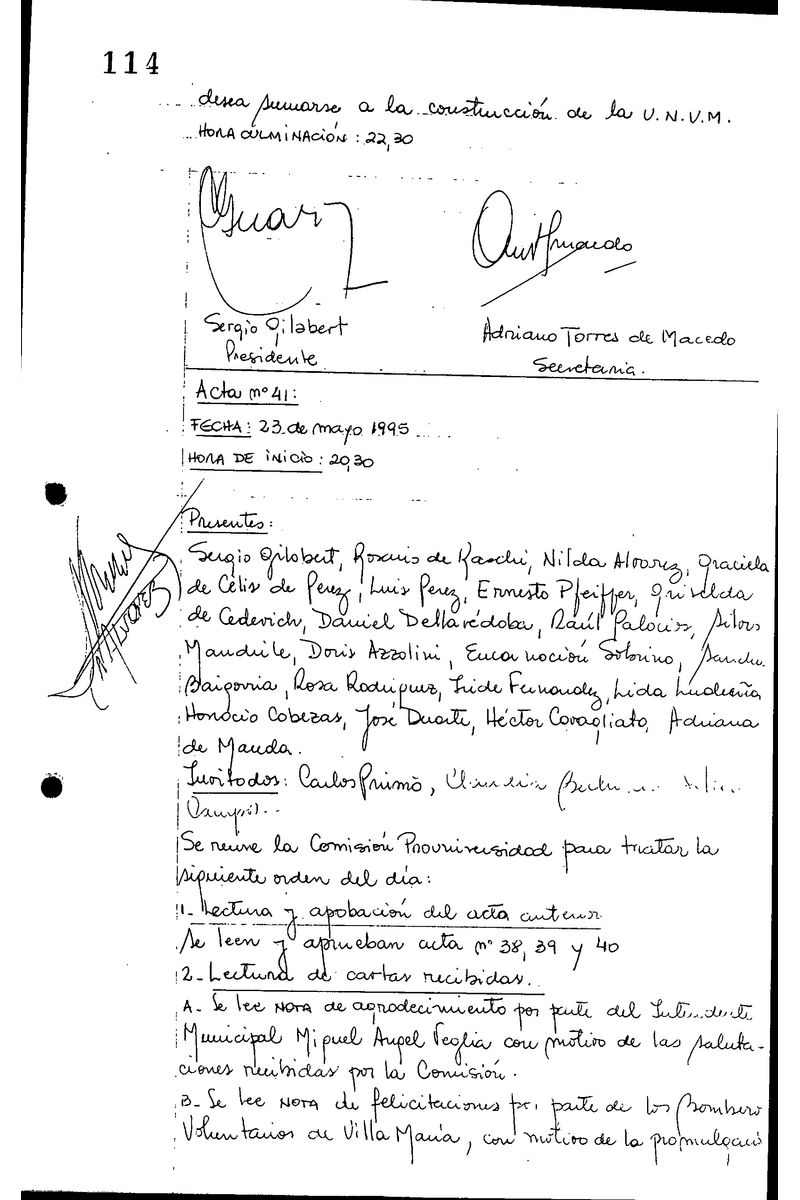 114
desea sumarse a la construcción de la U.N.V.M.
HORA CULMINACIÓN : 22,30
Sergio Gilabert
Presidente
Adriano Torres de Macedo
Secretaria.
Acta nº 41:
FECHA: 23 de mayo 1995
HORA DE INICIO : 20,30
Presentes:
Sergio Gilabert, Rosario de Raschi, Nilda Alvarez, Graciela
de Célis de Perez, Luis Perez, Ernesto Pfeiffer, Griselda
de Cedevich, Daniel Dellavédoba, Raúl Palacios,
Mandrile, Doris Azzolini, Encarnación Sobrino, Sandra
Baigorria, Rosa Rodriguez, Fernandez, Lida Ludueña
Horacio Cabezas, José Duarte, Héctor Cavagliato, Adriana
de Manda.
Invitados: Carlos Primo,
Se reúne la Comisión Prouniversidad para tratar la
siguiente orden del día:
1- Lectura y apobación del acta anterior
Se leen y aprueban acta nº 38, 39 y 40
2- Lectura de cartas recibidas.
A- Se lee NOTA de agradecimiento por parte del Intendente
Municipal Miguel Angel Veglia con motivo de las saluta-
ciones recibidas por la Comisión.
B- Se lee NOTA de felicitaciones por parte de los Bombero
Voluntarios de Villa María, con motivo de la promulgació